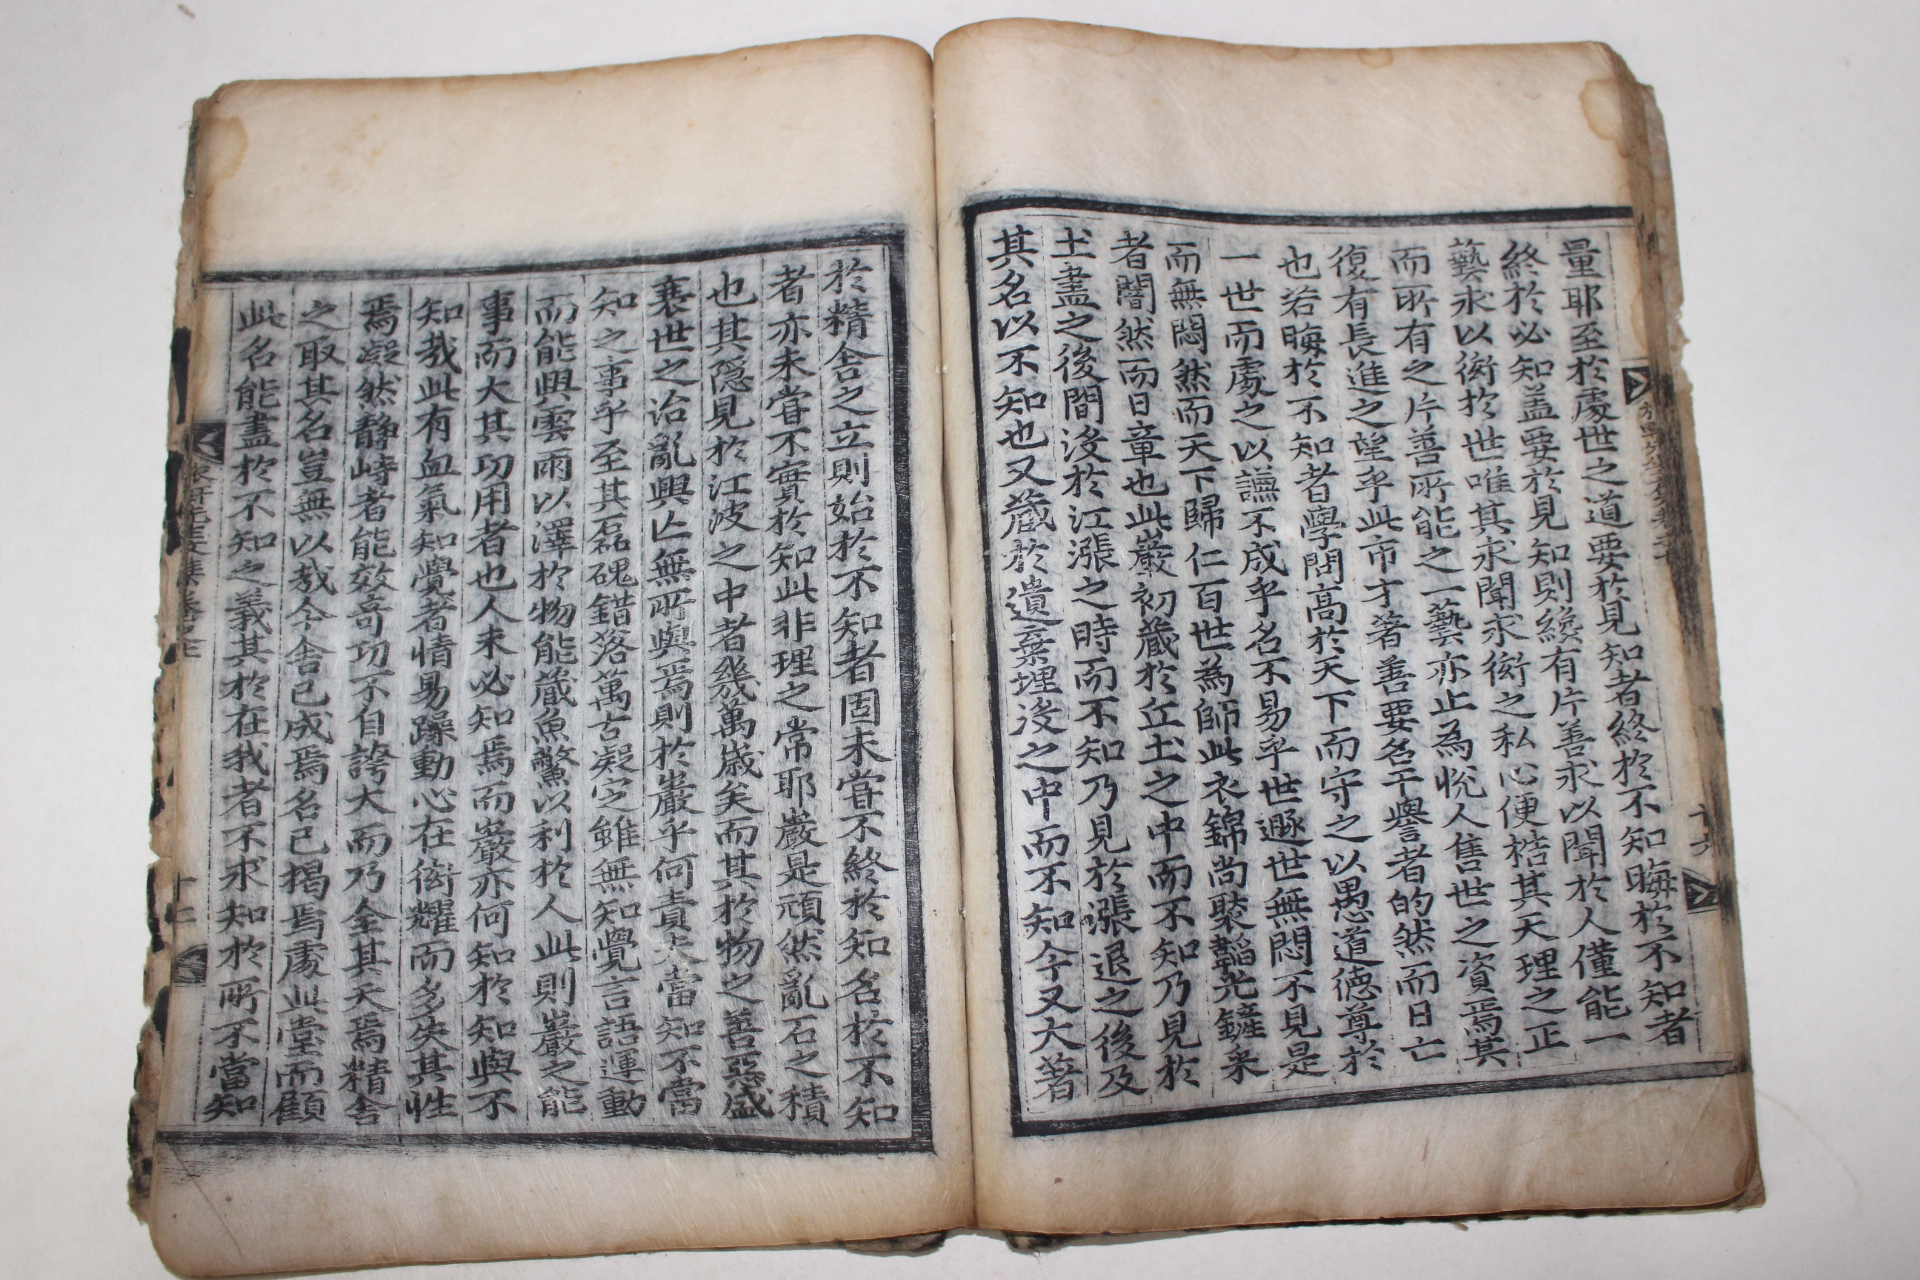 量耶至於處世之道要於見知者終於不知晦於不知者
終於必知盖要於見知則纔有片善求以聞於人僅能一
藝求以衒於世唯其求聞求衒之私心便梏其天理之正
而所有之片善所能之一藝亦止為悅人售世之資焉其
復有長進之望乎此市才著善要名干譽者的然而日亡
也若晦於不知者學問高於天下而守之以愚道德尊於
一世而處之以謙不成乎名不易乎世遯世無悶不見是
而無悶然而天下歸仁百世為師此衣錦尚褧韜光鏟采
者闇然而日章也此巖初藏於丘土之中而不知乃見於
土盡之後間沒於江漲之時而不知乃見於漲退之後及
其名以不知也又藏於遺棄埋沒之中而不知今又大著
於精舍之立則始於不知者固未嘗不終於知名於不知
者亦未嘗不實於知此非理之常耶巖是頑然亂石之積
也其隱見於江波之中者幾萬歲矣而其於物之善惡盛
衰世之治亂興亡無所與焉則於巖乎何責夫當知不當
知之事乎至其磊磈錯落萬古凝定雖無知覺言語運動
而能興雲雨以澤於物能藏魚鱉以利於人此則巖之能
事而大其功用者也人未必知焉而巖亦何知於知與不
知哉此有血氣知覺者情易躁動心在衒耀而多失其性
焉凝然靜峙者能效奇功不自誇大而乃全其天焉精舍
之取其名豈無以哉今舍已成焉名已揭焉處此堂而顧
此名能盡於不知之義其於在我者不求知於所不當知
十六
十七